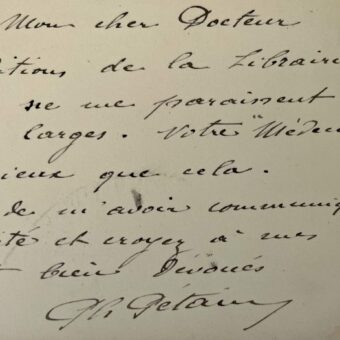 Mon cher Docteur
itions de la Librairi
ne me paraissent
larges. Votre "Médec
ieux que cela.
de m'avoir communiq
té et croyez à mes
bien dévoués
Ph Pétain